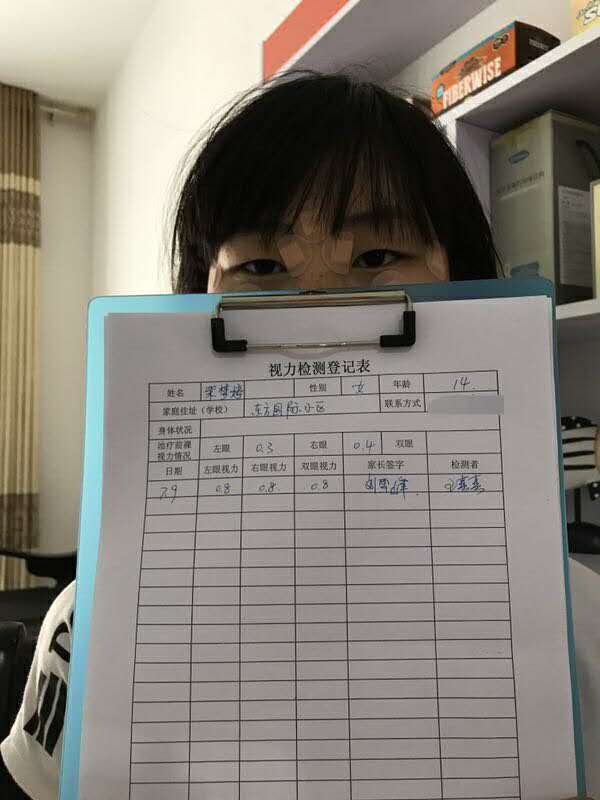 FIBERWISE
视力检测登记表
姓名 梁梦婷 性别 女 年龄 14.
家庭住址（学校） 东方国际小区 联系方式
身体状况
治疗前裸视力情况 左眼 0.3 右眼 0.4 双眼
日期 左眼视力 右眼视力 双眼视力 家长签字 检测者
7.9 0.8 0.8 0.8